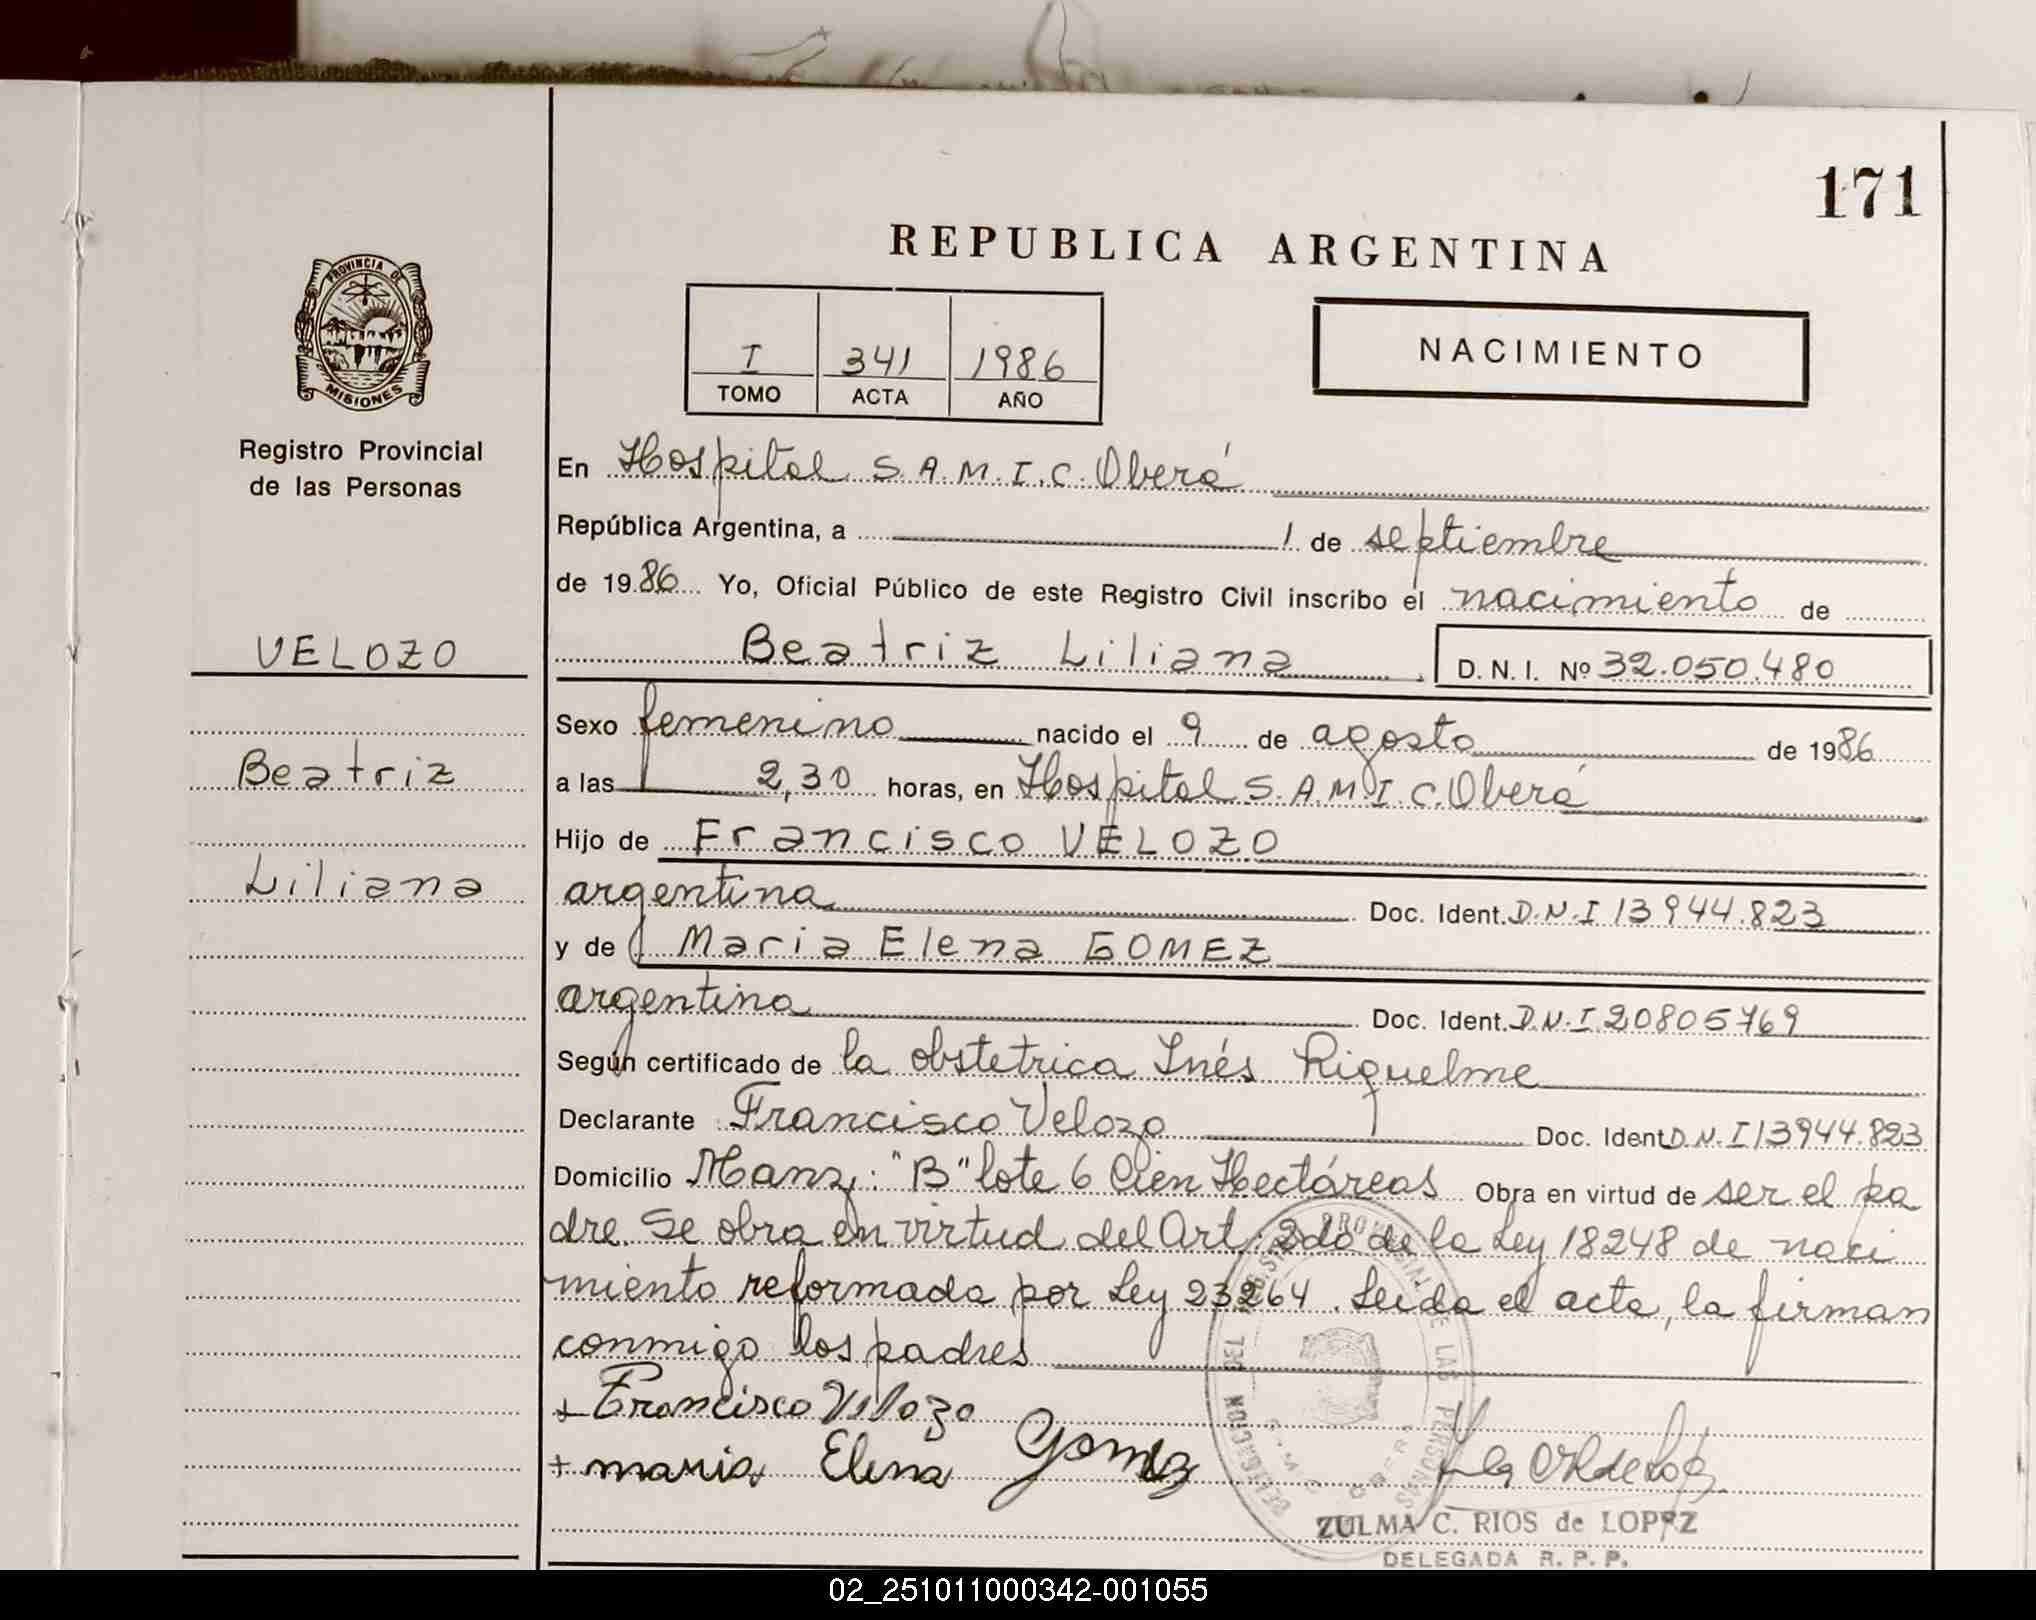 171
REPUBLICA ARGENTINA
PROVINCIA DE
MISIONES
I 341 1986
TOMO ACTA AÑO
NACIMIENTO
Registro Provincial
de las Personas
VELOZO
Beatriz
Liliana
En Hospital S.A.M.I.C. Oberá
República Argentina, a 1 de septiembre
de 1986 Yo, Oficial Público de este Registro Civil inscribo el nacimiento de
Beatriz Liliana D. N. I. Nº 32.050.480
Sexo femenino nacido el 9 de agosto de 1986
a las 2,30 horas, en Hospital S.A.M.I.C. Oberá
Hijo de Francisco VELOZO
argentina Doc. Ident. D.N.I 13944.823
y de Maria Elena GOMEZ
argentina Doc. Ident. D.N.I 20805769
Según certificado de la obstetrica Inés Riquelme
Declarante Francisco Velozo Doc. Ident D.N.I 13944.823
Domicilio Manz: "B" lote 6 Cien Hectáreas Obra en virtud de ser el pa
dre. Se obra en virtud del Art. 2do de la Ley 18248 de naci
miento reformada por Ley 23264. Leida el acta, la firman
conmigo los padres
+ Francisco Velozo
+ maria Elena Gomez
DELEGACION DEL REGISTRO PROVINCIAL DE LAS PERSONAS
ZULMA C. RIOS de LOPEZ
DELEGADA R. P. P.
02_251011000342-001055